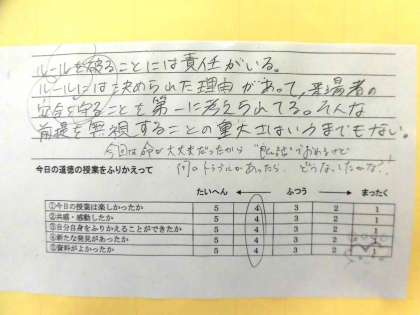 ルールを破ることには責任がいる。
ルールには決められた理由があって、来場者の
安全を守ることを第一に考えられてる。そんな
前提を無視することの重大さはいうまでもない。
今回は命が大丈夫だったから "美談" でおわるけど
何かトラブルがあったら、どうなってたかな?
今日の道徳の授業をふりかえって
たいへん ふつう まったく
①今日の授業は楽しかったか 5 4 3 2 1
②共感・感動したか 5 4 3 2 1
③自分自身をふりかえることができたか 5 4 3 2 1
④新たな発見があったか 5 4 3 2 1
⑤資料がよかったか 5 4 3 2 1